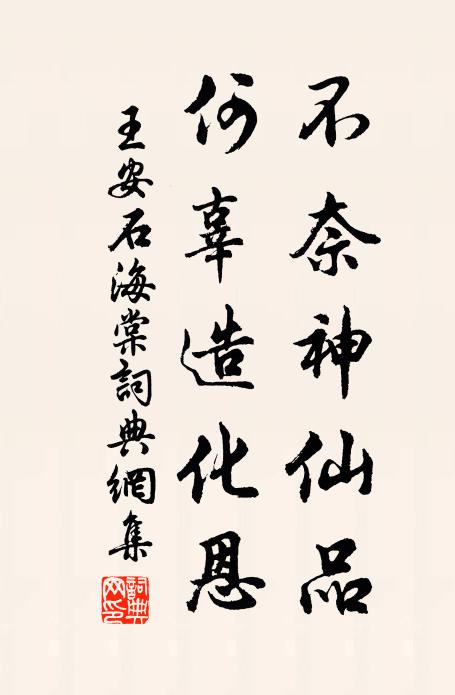 不奈神仙品
何辜造化恩
王安石海棠詞典網集
詞典网印